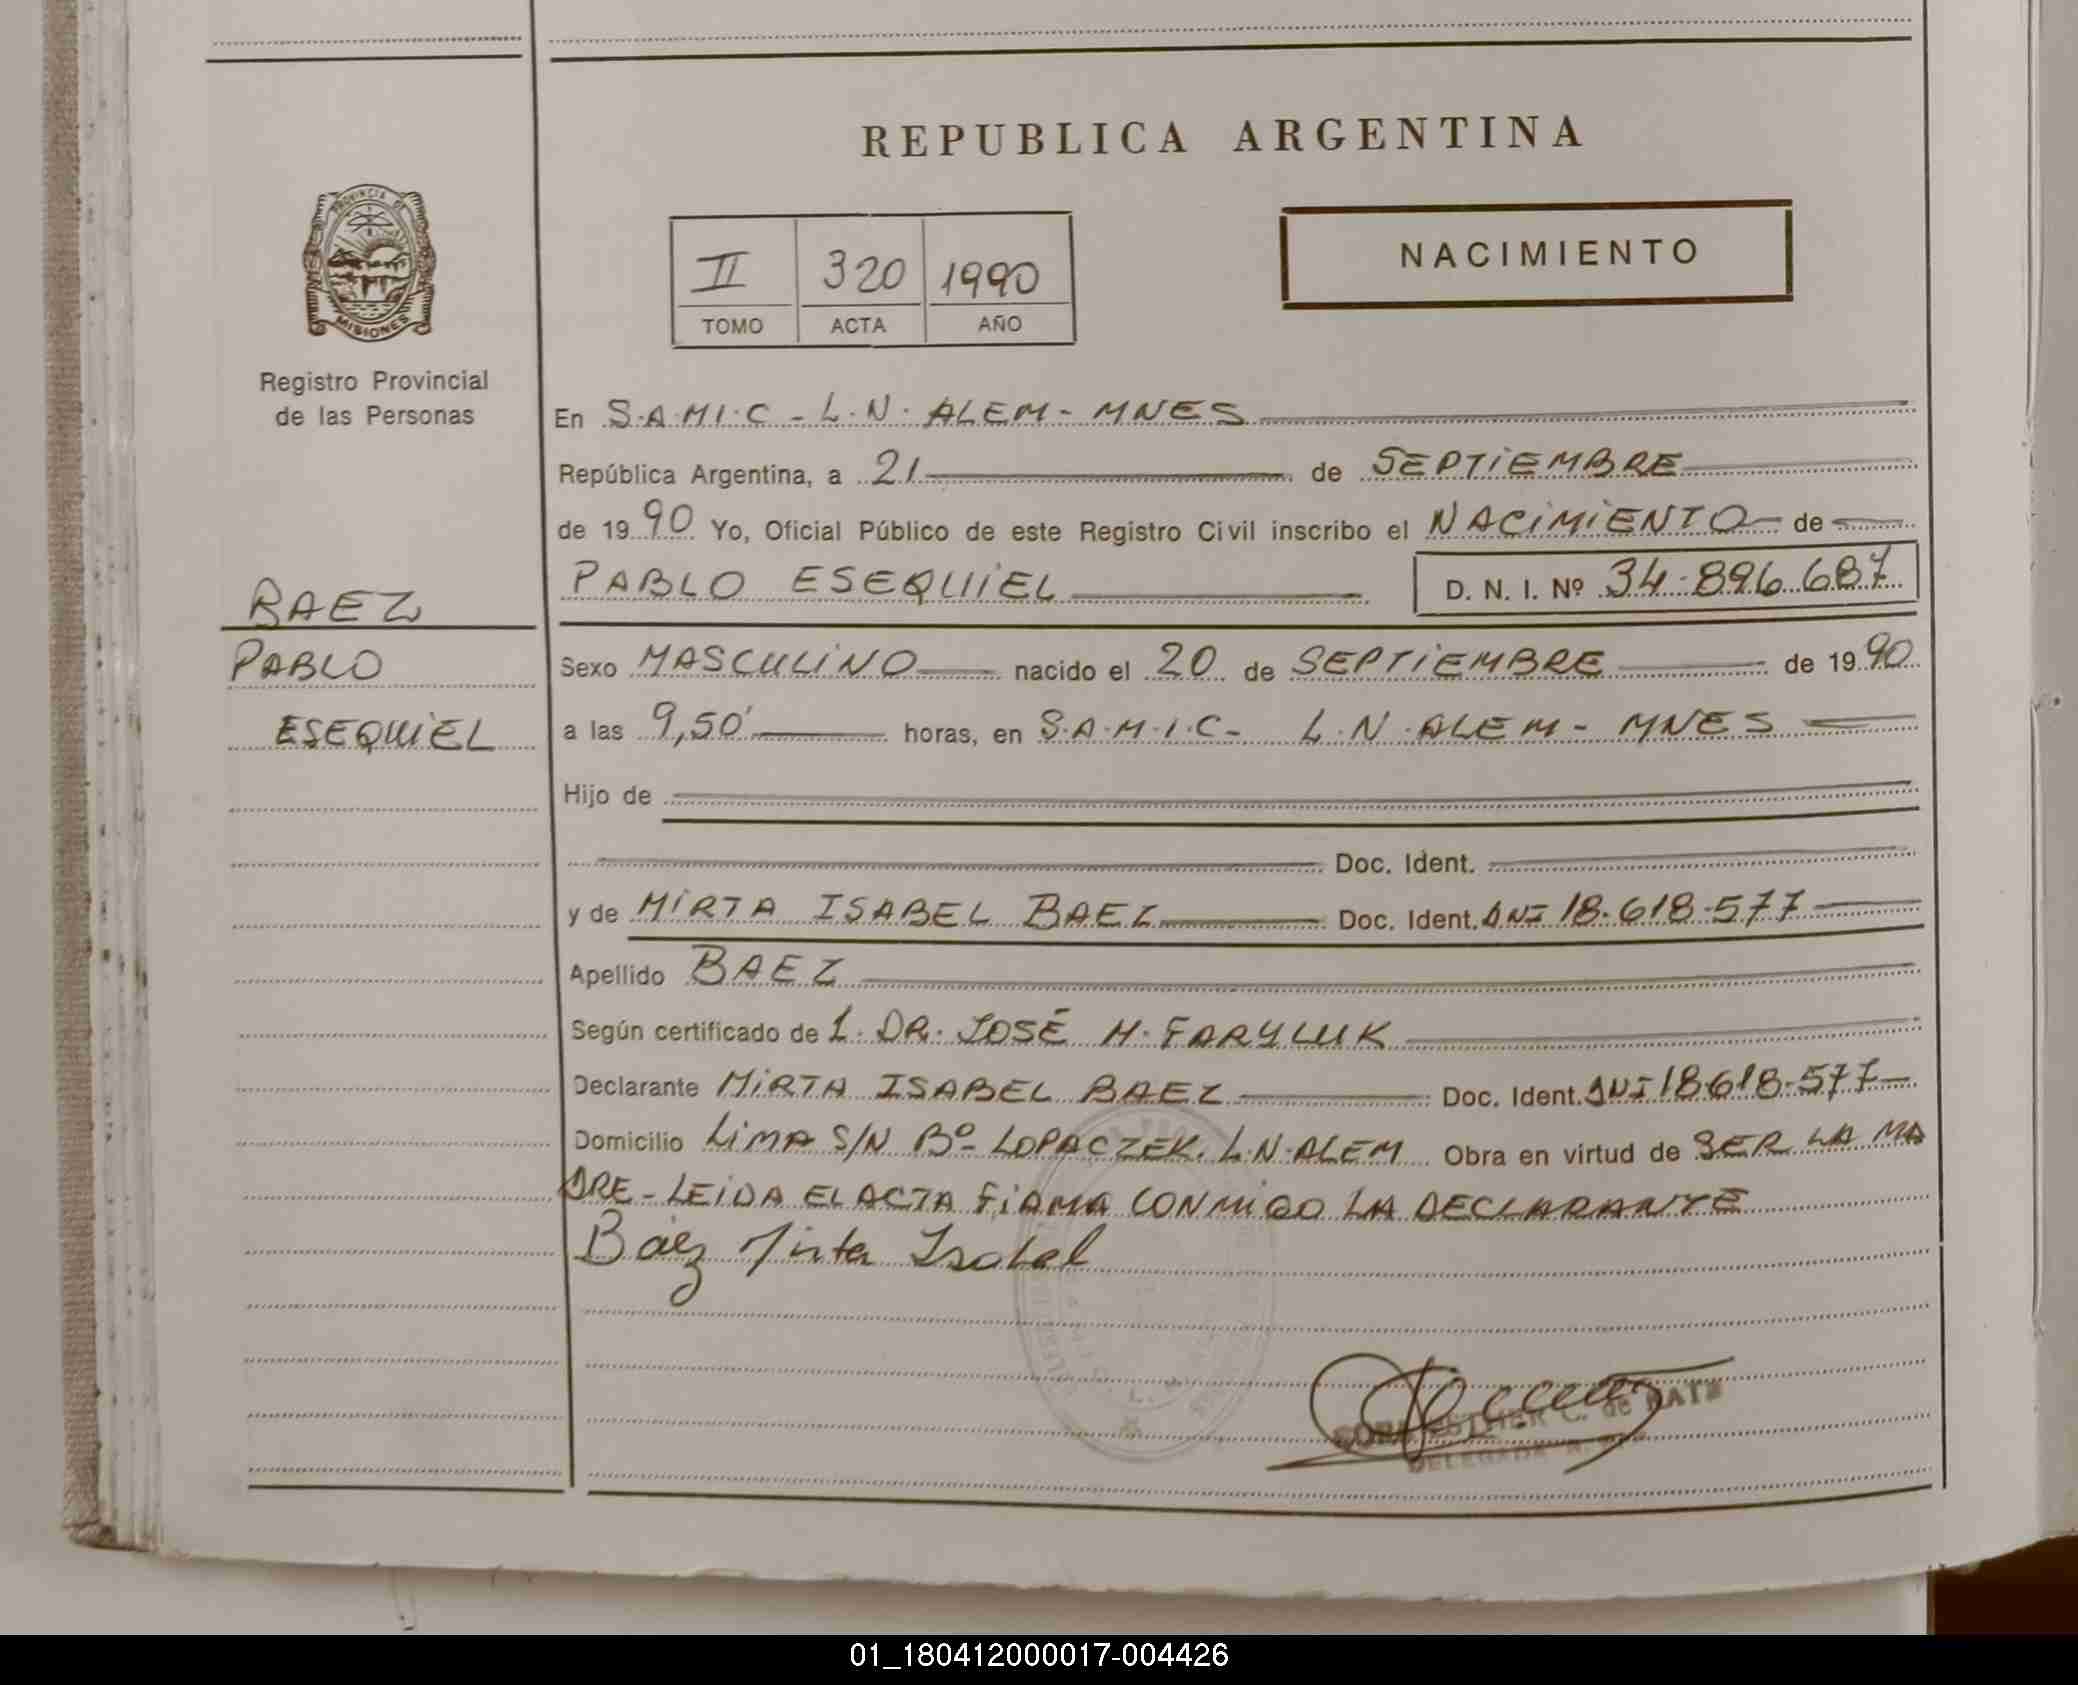 REPUBLICA ARGENTINA
PROVINCIA DE
MISIONES
Registro Provincial
de las Personas
II 320 1990
TOMO ACTA AÑO
NACIMIENTO
En S.A.M.I.C - L.N. ALEM - MNES
República Argentina, a 21 de SEPTIEMBRE
de 1990 Yo, Oficial Público de este Registro Civil inscribo el NACIMIENTO de
PABLO ESEQUIEL D. N. I. Nº 34.896.687
BAEZ
PABLO
ESEQUIEL
Sexo MASCULINO nacido el 20 de SEPTIEMBRE de 1990
a las 9,50' horas, en S.A.M.I.C - L.N. ALEM - MNES
Hijo de
Doc. Ident.
y de MIRTA ISABEL BAEZ Doc. Ident. DNI 18.618.577
Apellido BAEZ
Según certificado de 1. DR. JOSÉ H. FARYLUK
Declarante MIRTA ISABEL BAEZ Doc. Ident. DNI 18.618.577
Domicilio LIMA S/N Bº LOPACZEK. L.N. ALEM Obra en virtud de SER LA MA
DRE - LEIDA EL ACTA FIRMA CONMIGO LA DECLARANTE
Báez Mirta Isabel
ESTHER C. de
DELEGADA
01_180412000017-004426